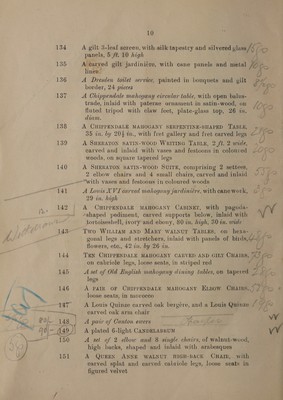 10
134 A gilt 3-leaf screen, with silk tapestry and silvered glass
panels, 5 ft. 10 high
135 A carved gilt jardinière, with cane panels and metal
liner
136 A Dresden toilet service, painted in bouquets and gilt
border, 24 pieces
137 A Chippendale mahogany circular table, with open balus-
trade, inlaid with paterae ornament in satin-wood, on
fluted tripod with claw feet, plate-glass top, 26 in.
diam.
138 A CHIPPENDALE MAHOGANY SERPENTINE-SHAPED TABLE,
33 in. by 20½ in., with fret gallery and fret carved legs
139 A SHERATON SATIN-WOOD WRITING TABLE, 2 ft. 2 wide,
carved and inlaid with vases and festoons in coloured
woods, on square tapered legs
140 A SHERATON SATIN-WOOD SUITE, comprising 2 settees,
2 elbow chairs and 4 small chairs, carved and inlaid
with vases and festoons in coloured woods
141 A Louis XVI carved mahogany jardinière, with cane work,
29 in. high
142 A CHIPPENDALE MAHOGANY CABINET, with pagoda-
shaped pediment, carved supports below, inlaid with
tortoiseshell, ivory and ebony, 80 in. high, 20 in. wide
143 TWO WILLIAM AND MARY WALNUT TABLES, on hexa-
gonal legs and stretchers, inlaid with panels of birds,
flowers, etc., 42 in. by 26 in.
144 TEN CHIPPENDALE MAHOGANY CARVED AND GILT CHAIRS,
on cabriole legs, loose seats, in striped red
145 A set of Old English mahogany dining tables, on tapered
legs
146 A PAIR OF CHIPPENDALE MAHOGANY ELBOW CHAIRS,
loose seats, in morocco
147 A Louis Quinze carved oak bergère, and a Louis Quinze
carved oak arm chair
148 A pair of Canton ewers
149 A plated 6-light CANDELABRUM
150 A set of 2 elbow and 8 single chairs, of walnut-wood,
high backs, shaped and inlaid with arabesques
151 A QUEEN ANNE WALNUT HIGH-BACK CHAIR, with
carved splat and carved cabriole legs, loose seats in
figured velvet